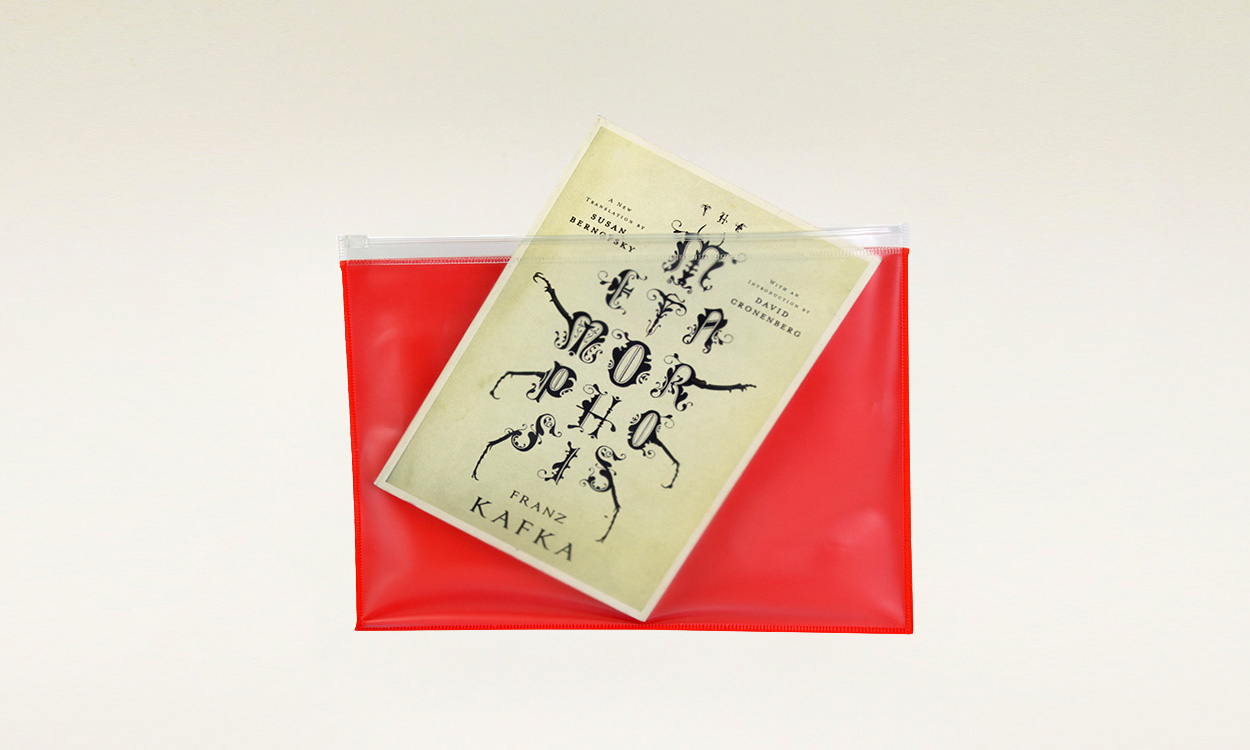 A New
Translation by
SUSAN
BERNOFSKY
THE
M
ETA
MOR
PHO
SIS
With an
Introduction by
DAVID
CRONENBERG
FRANZ
KAFKA